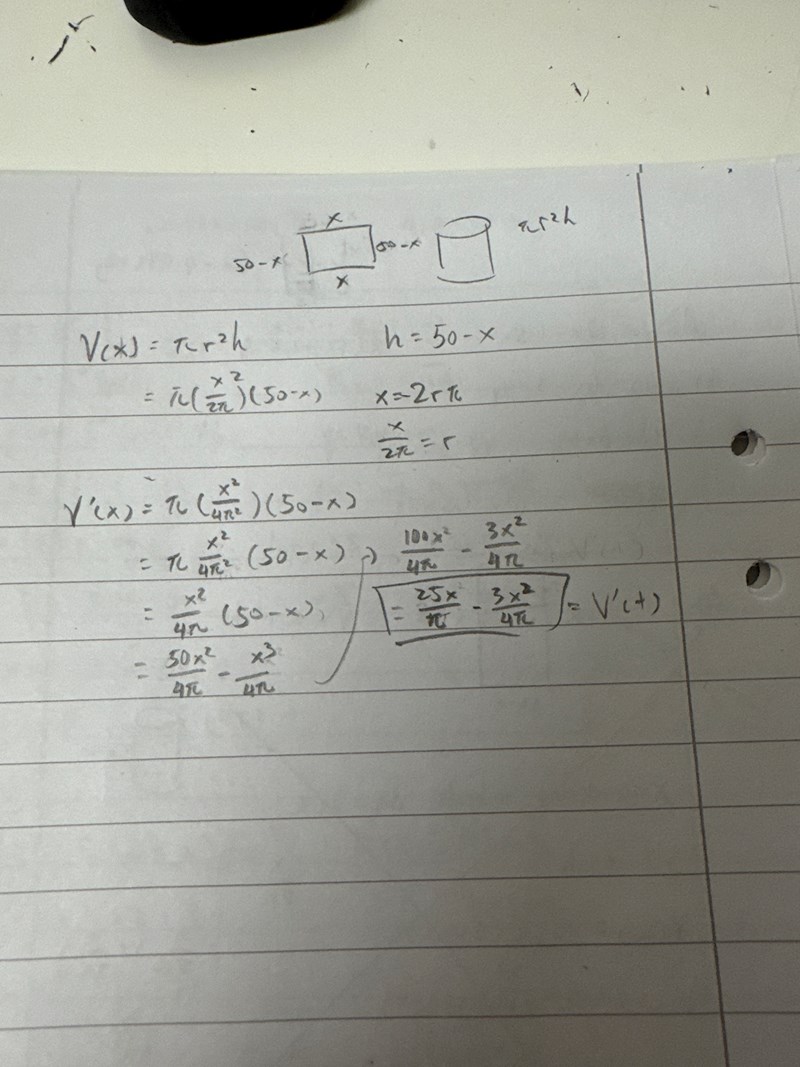 x
50-x 50-x πr²h
x
V(x) = πr²h h = 50-x
= π(x/2π ²)(50-x) x=2rπ
x/2π = r
V'(x) = π(x²/4π²)(50-x)
= π x²/4π² (50-x) 100x²/4π - 3x²/4π
= x²/4π (50-x) = 25x/π - 3x²/4π = V'(t)
= 50x²/4π - x³/4π